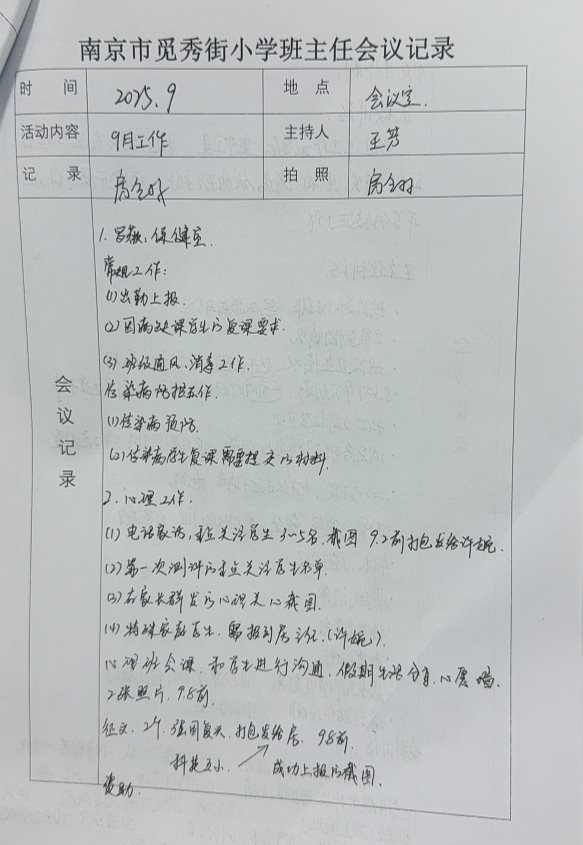 南京市觅秀街小学班主任会议记录
时 间 2025.9 地 点 会议室.
活动内容 9月工作 主持人 王芳
记 录 拍 照
会议记录
1. 保健室
常规工作:
(1)出勤上报.
(2)因病缺课学生的复课要求.
(3)班级通风、消毒工作.
传染病防控工作.
(1)传染病预防.
(2)传染病学生复课需要提交的材料.
2. 心理工作.
(1)电话家访,重点关注学生3~5名.截图 9.2前打包发给许婉.
(2)第一次测评的重点关注学生名单.
(3)在家长群发的心理关心截图.
(4)特殊家庭学生.需报到居主任.(许婉).
心理班会课.和学生进行沟通.假期生活分享.心愿墙.
2张照片.9.8前.
征文.2个.强国复兴.打包发给居.9.8前
科技五小. 成功上报的截图.
资助.